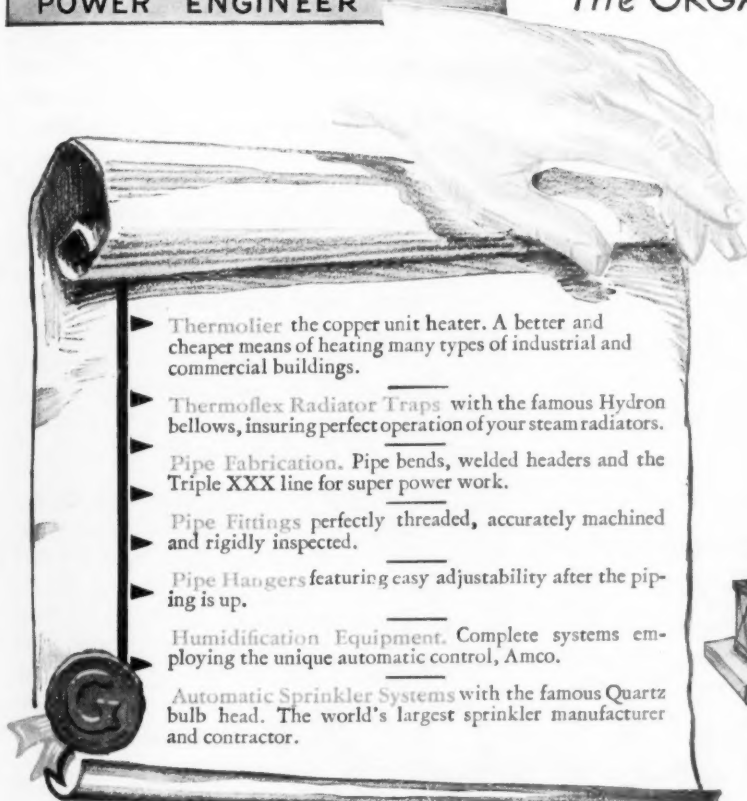 POWER ENGINEER
The ORGA
Thermolier the copper unit heater. A better and
cheaper means of heating many types of industrial and
commercial buildings.
Thermoflex Radiator Traps with the famous Hydron
bellows, insuring perfect operation of your steam radiators.
Pipe Fabrication. Pipe bends, welded headers and the
Triple XXX line for super power work.
Pipe Fittings perfectly threaded, accurately machined
and rigidly inspected.
Pipe Hangers featuring easy adjustability after the pip-
ing is up.
Humidification Equipment. Complete systems em-
ploying the unique automatic control, Amco.
Automatic Sprinkler Systems with the famous Quartz
bulb head. The world's largest sprinkler manufacturer
and contractor.
G